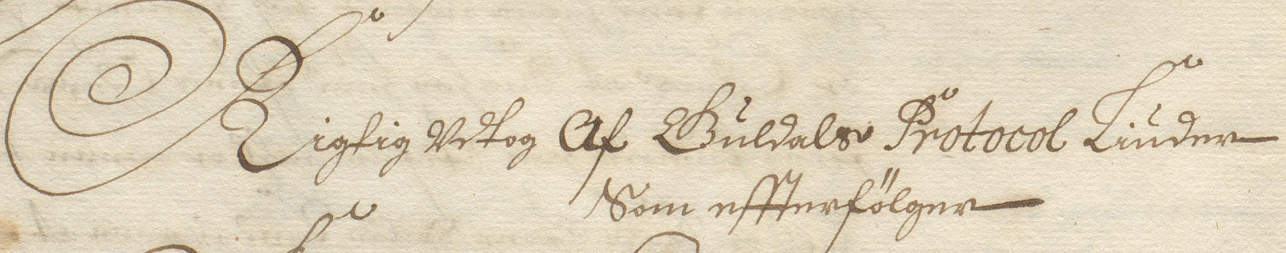 Rigtig Vdtog Af Guldals Protocol Liuder
Som effterfölger